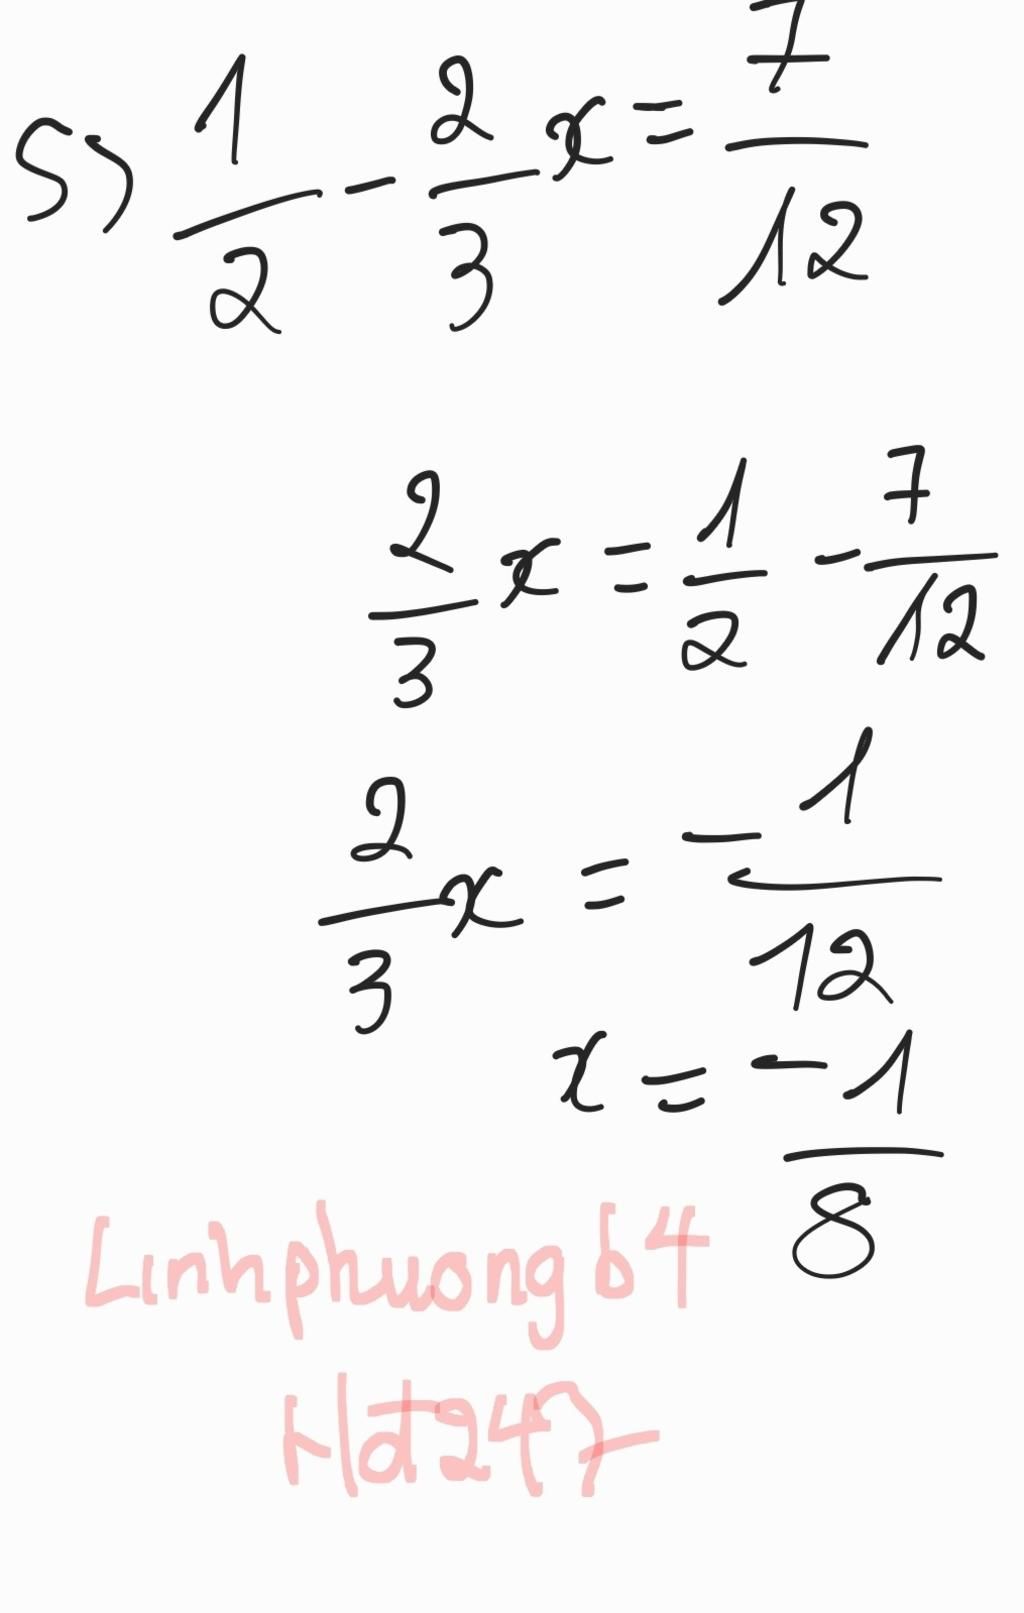 5) 1/2 - 2/3 x = 7/12
2/3 x = 1/2 - 7/12
2/3 x = - 1/12
x = -1/8
Linhphuong64
Hd247